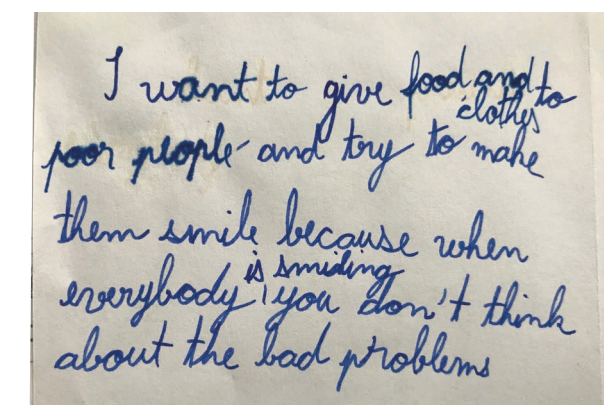 I want to give food and clothes to
poor people and try to make
them smile because when
everybody is smiling, you don't think
about the bad problems